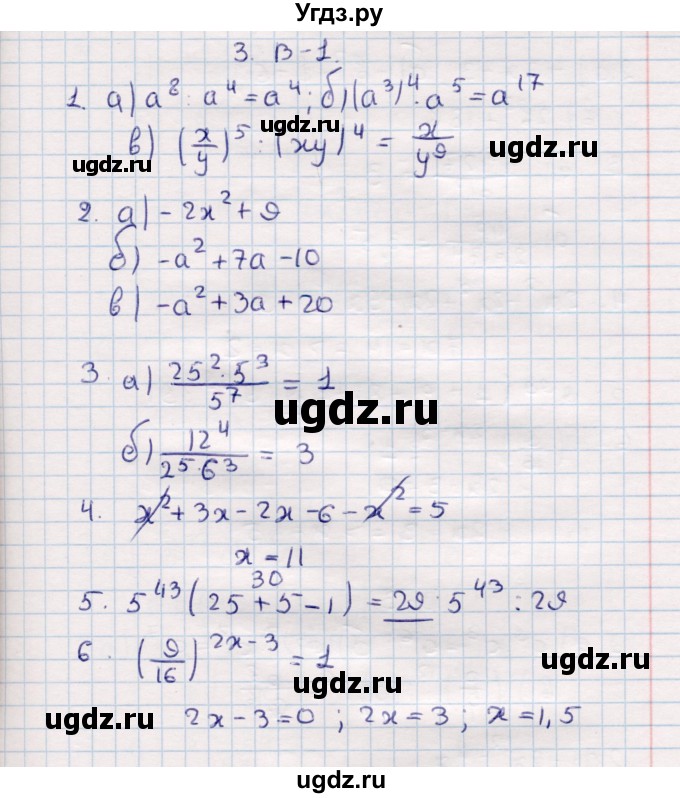 Угдз.ру
3. В-1.
1. а) a⁸ : a⁴ = a⁴; б) (a³)⁴ · a⁵ = a¹⁷
ugdz.ru
в) (x/y)⁵ : (xy)⁴ = x/y⁹
ugdz.ru
ugdz.ru
2. а) -2x² + 9
б) -a² + 7a - 10
в) -a² + 3a + 20
3. а) 25² · 5³ / 5⁷ = 1
ugdz.ru
б) 12⁴ / 2⁵ · 6³ = 3
4. x² + 3x - 2x - 6 - x² = 5
x = 11
30
5. 5⁴³ (25 + 5 - 1) = 29 · 5⁴³ : 29
6. (9/16)²ˣ⁻³ = 1
ugdz.ru
ugdz.ru
2x - 3 = 0 ; 2x = 3 ; x = 1,5
ugdz.ru